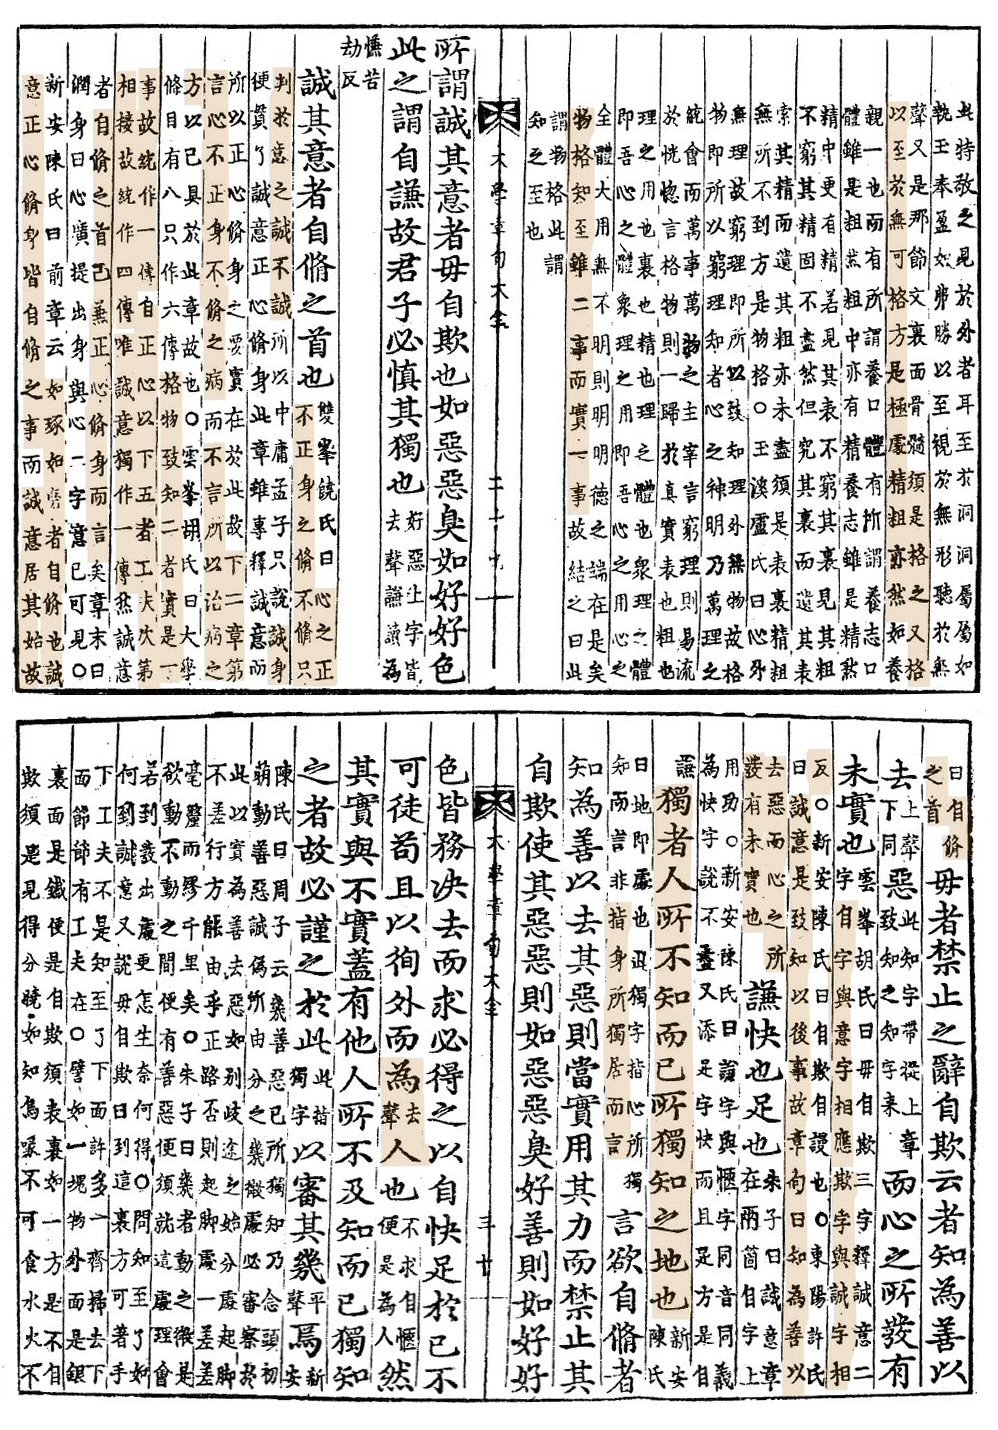 此持敬之見於外者耳至於洞洞屬屬如
執玉奉盈如弗勝以至視於無形聽於無
聲又是那節文裏面骨髓須是格之又格
以至於無可格方是極處精粗亦然如養
親一也而有所謂養口體有所謂養志口
體雖是粗然粗中亦有精養志雖是精然
精中更有精若見其表不窮其裏見其粗
不窮其精固不盡然但究其裏而遺其表
索其精而遺其粗亦未盡須是表裏精粗
無所不到方是物格○玉溪盧氏曰心外
無理故窮理即所以致知理外無物故格
物即所以窮理知者心之神明乃萬理之
統會而萬事萬物之主宰言窮理則易流
於恍惚言格物則一歸於真實表也粗也
理之用也裏也精也理之體也衆理之體
即吾心之體衆理之用即吾心之用心之
全體大用無不明則明明德之端在是矣
物格知至雖二事而實一事故結之曰此
謂物格此謂
知之至也
大學章句大全 二十九
所謂誠其意者毋自欺也如惡惡臭如好好色
此之謂自謙故君子必慎其獨也好惡上字皆去聲謙讀為
慊苦劫反
誠其意者自脩之首也雙峯饒氏曰心之正不正身之脩不脩只
判於意之誠不誠所以中庸孟子只說誠身
便貫了誠意正心脩身此章雖專釋誠意而
所以正心脩身之要實在於此故下二章第
言心不正身不脩之病而不言所以治病之
方以已具於此章故也○雲峯胡氏曰大學
條目有八只作六傳格物致知二者實是一
事故統作一傳自正心以下五者工夫次第
相接故統作四傳唯誠意獨作一傳然誠意
者自脩之首已兼正心脩身而言矣章末曰
潤身曰心廣提出身與心二字意已可見○
新安陳氏曰前章云如琢如磨者自脩也誠
意正心脩身皆自脩之事而誠意居其始故
曰自脩之首毋者禁止之辭自欺云者知為善以
去上聲下同惡此知字帶從上章致知之知字來而心之所發有
未實也雲峯胡氏曰毋自欺三字釋誠意二字自字與意字相應欺字與誠字相
反○新安陳氏曰自欺謾也○東陽許氏
曰誠意是致知以後事故章句曰知為善以
去惡而心之所發有未實也謙快也足也朱子曰誠意章在兩箇自字上
用功○新安陳氏曰謙字與慊字同音義
為快字說不盡又添足字快而且足方是自
謙獨者人所不知而己所獨知之地也新安陳氏
曰地即處也獨字指心所獨知而言非指身所獨居而言言欲自脩者
知為善以去其惡則當實用其力而禁止其
自欺使其惡惡則如惡惡臭好善則如好好
大學章句大全 三十
色皆務決去而求必得之以自快足於己不
可徒苟且以徇外而為去聲人也不求自慊便是為人然
其實與不實蓋有他人所不及知而己獨知
之者故必謹之於此此指獨字以審其幾平聲焉新安
陳氏曰周子云幾善惡己所獨知乃念頭初
萌動善惡誠偽所由分之幾微處必審察於
此以實為善去惡如別岐途之始分處起脚
不差行方能由乎正路否則起脚處一差差
毫釐而繆千里矣○朱子曰幾者動之微是
欲動不動之間便有善惡便須就這處理會
若到發出處更怎生奈何得○問知至了如
何到誠意又說毋自欺曰到這裏方可著手
下工夫不是知至了下面許多一齊掃去下
面節節有工夫在○譬如一塊物外面是銀
裏面是鐵便是自欺須表裏如一方是不自
欺須是見得分曉如知烏喙不可食水火不